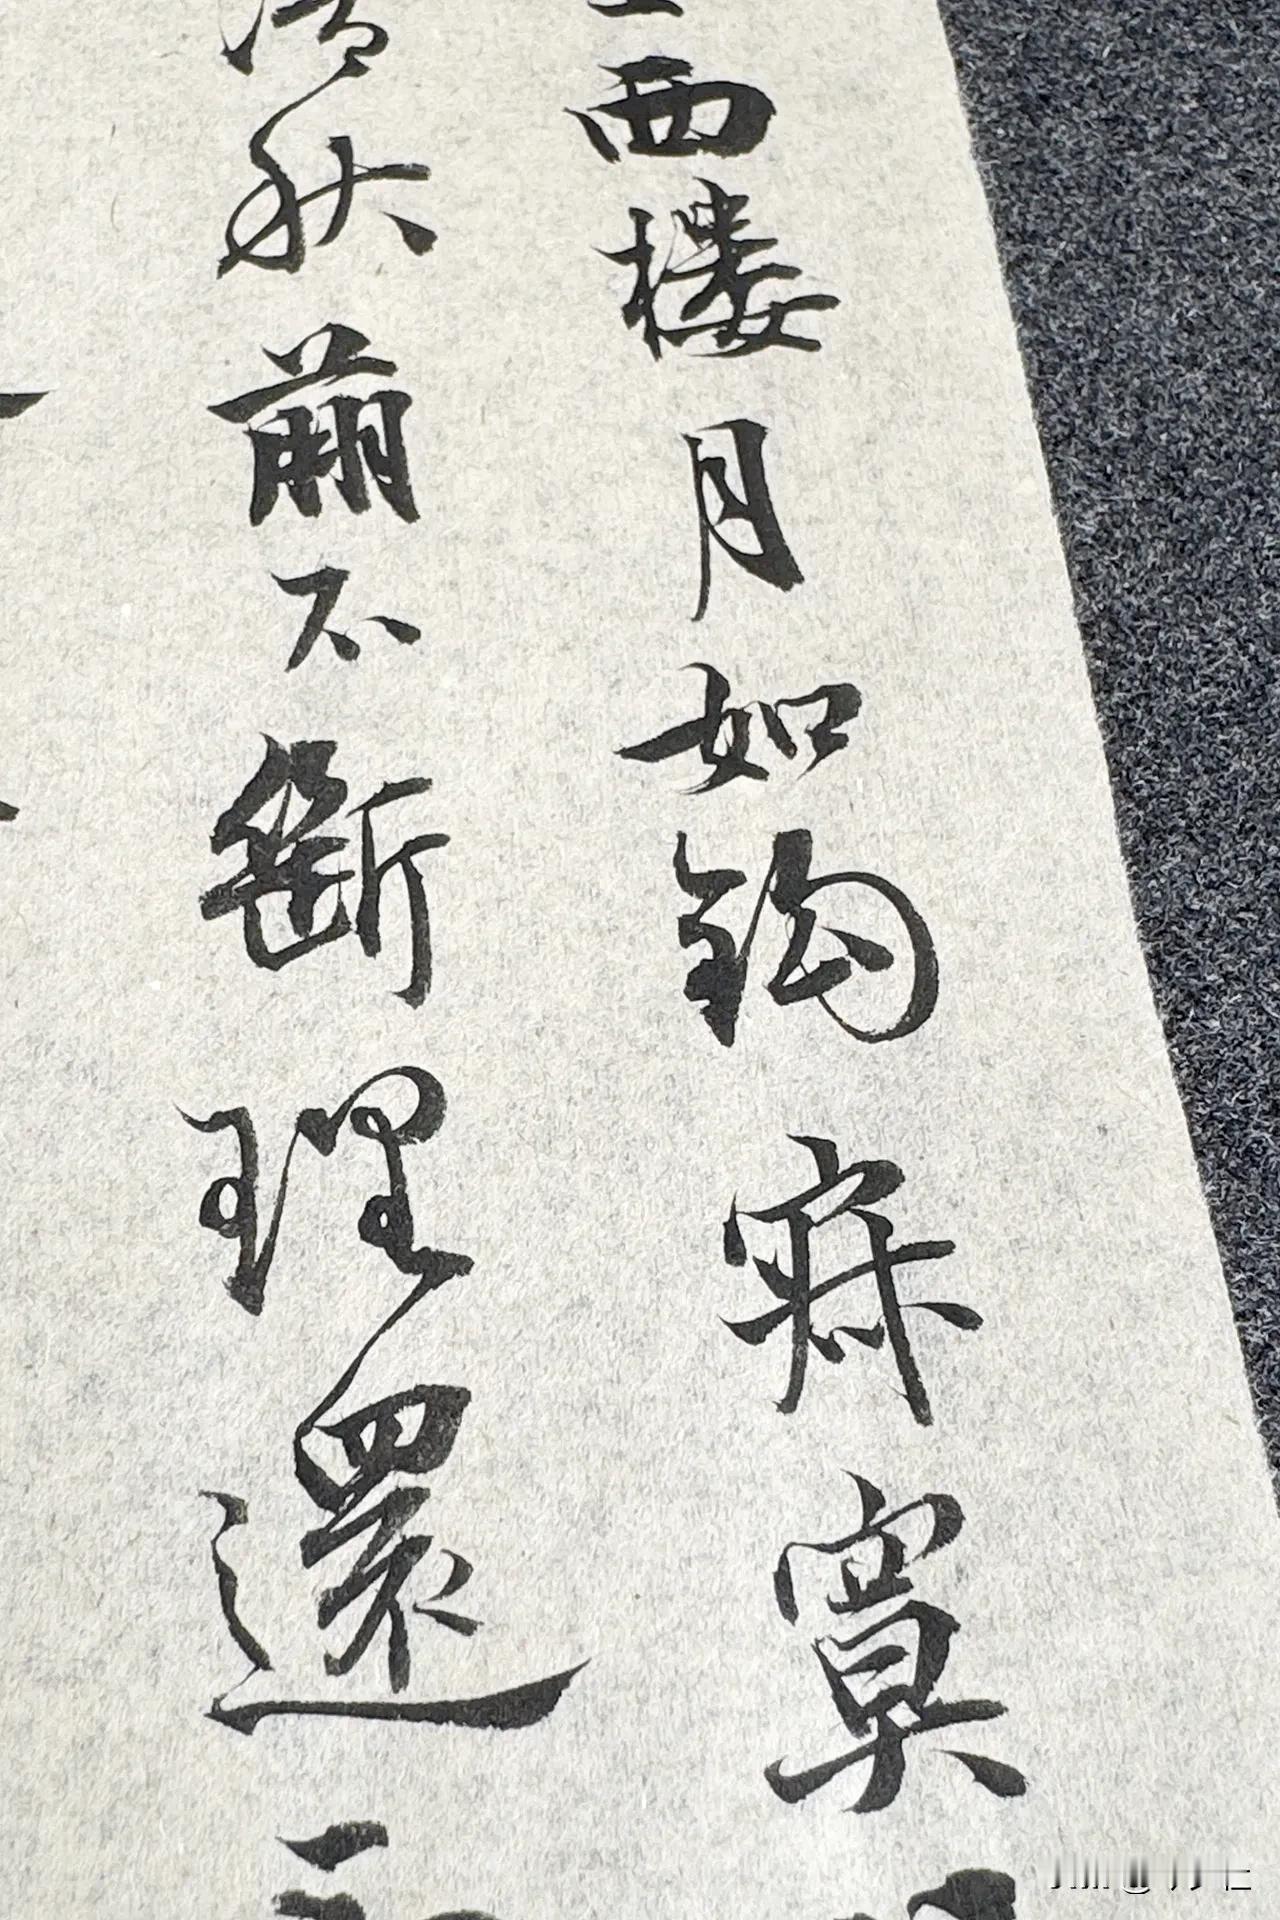 西楼月如鈎寂寞
清秋剪不斷理還